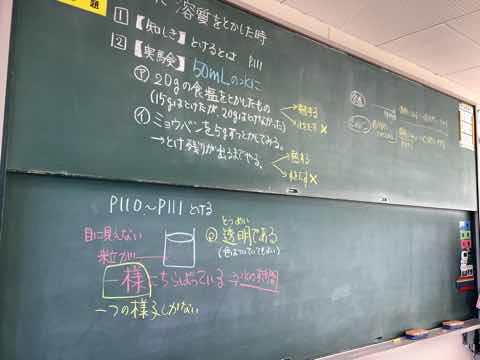 題
に溶質をとかした時
1 【知しき】とけるとは P111
2 【実験】 50mLの水に
㋐ 20gの食塩をとかしたもの
(15gはとけたが、20gはとけなかった)
熱する
冷やす ×
㋑ ミョウバンを5gずつとかしてみる。
→とけ残りが出るまでやる。
熱する
冷やす ×
P110〜P111 とける
目に見えない
粒が
一様にちらばっている →水の時間
一つの様子しかない
とうめい
透明である
(色はついていてもよい)